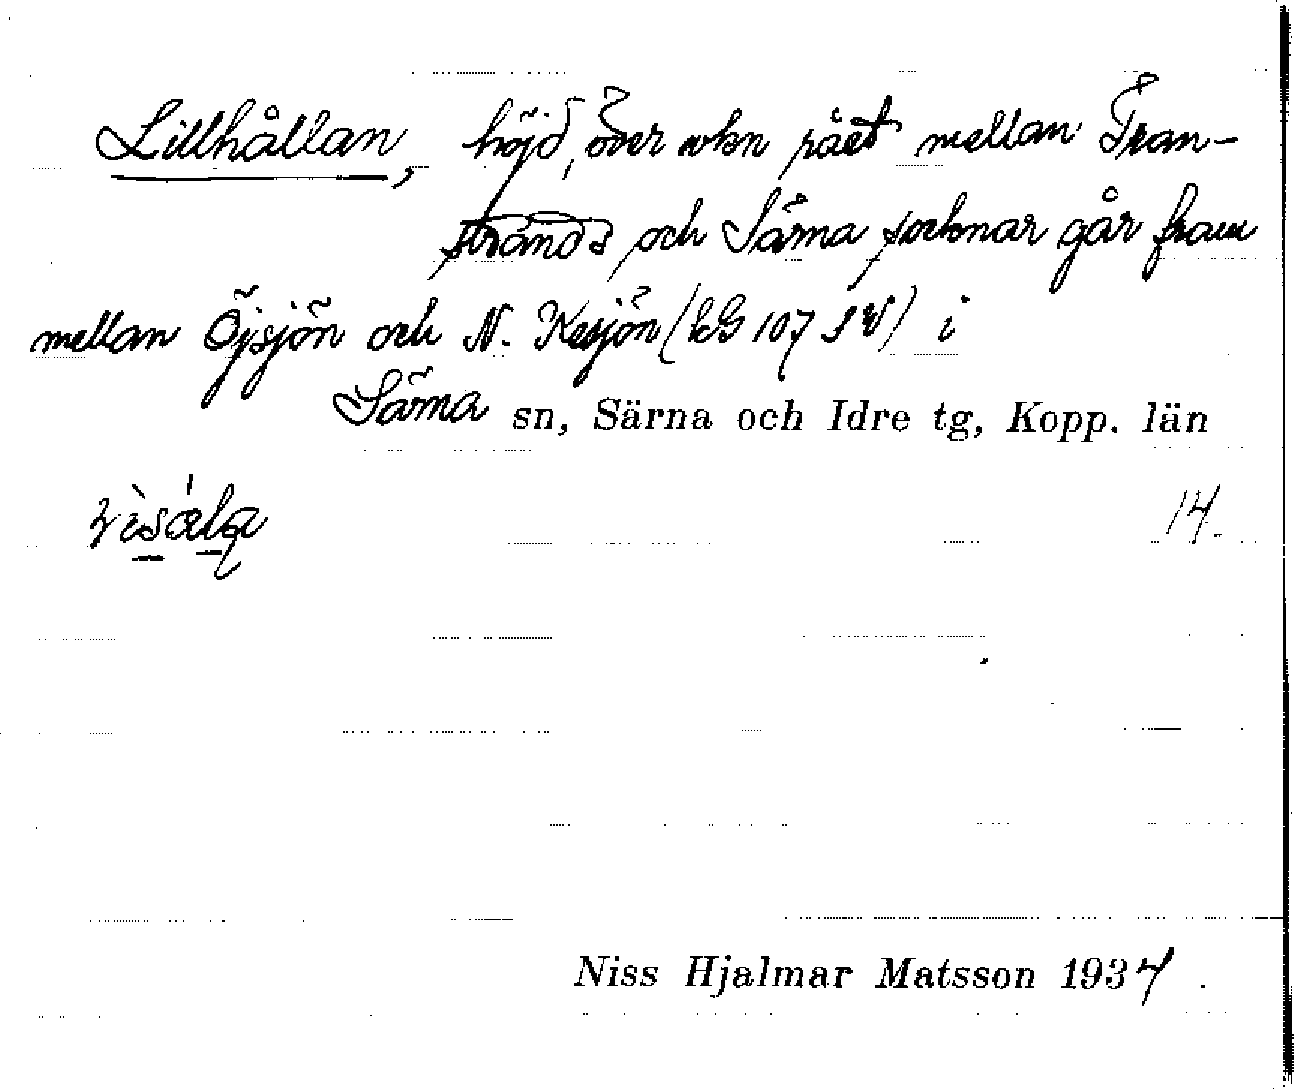 Lillhållan, höjd, över vkn rået mellan Tran-
strands och Särna socknar går fram
mellan Öjsjön och N. Kesjön (EG 107 SV) i
Särna sn, Särna och Idre tg, Kopp. län
14.
Niss Hjalmar Matsson 1934.